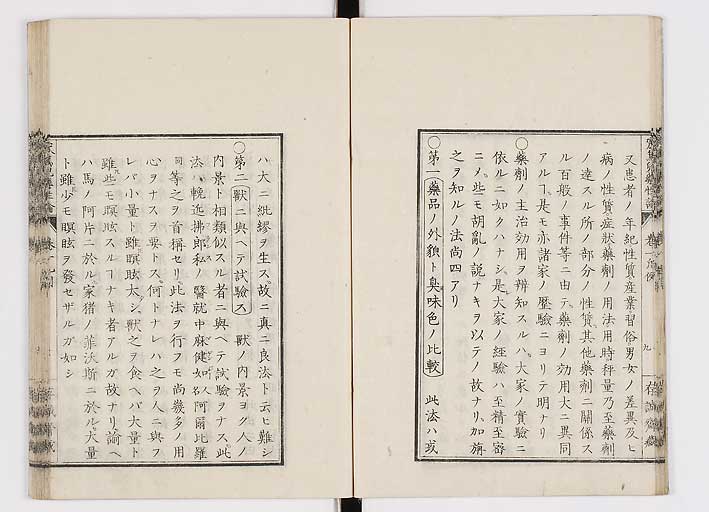 又患者ノ年紀性質産業習俗男女ノ差異及ヒ
病ノ性質症状藥劑ノ用法用時秤量乃至藥劑
ノ達スル所ノ部分ノ性質其他藥劑ニ關係ス
ル百般ノ事件等ニ由テ藥劑ノ効用大ニ異同
アルヿ是モ亦諸家ノ歴驗ニヨリテ明ナリ
〇藥劑ノ主治効用ヲ辨知スルハ大家ノ實驗ニ
依ルニ如クハナシ是大家ノ經驗ハ至精至審
ニノ些モ胡亂ノ説ナキヲ以テノ故ナリ加旃
之ヲ知ルノ法尚四アリ
〇第一藥品ノ外貌ト臭味色ノ比較 此法ハ或
九
ハ大ニ紕繆ヲ生ス故ニ真ニ良法ト云ヒ難シ
〇第二獸ニ與ヘテ試驗ス 獸ノ内景ヨク人ノ
内景ト相類似スル者ニ與ヘテ試驗ヲナス此
法ハ輓近拂郎私ノ醫就中麻健如人名阿爾比羅
同等之ヲ首稱セリ此法ヲ行フモ尚幾多ノ用
心ヲナスヲ要トス何トナレハ之ヲ人ニ與フ
レバ小量ト雖瞑眩太シ獸之ヲ食ヘバ大量ト
雖些モ瞑眩スルヿナキ者アルガ故ナリ諭ヘ
ハ馬ノ阿片ニ於ル家猪ノ菲沃斯ニ於ル大量
ト雖少モ瞑眩ヲ發セザルガ如シ